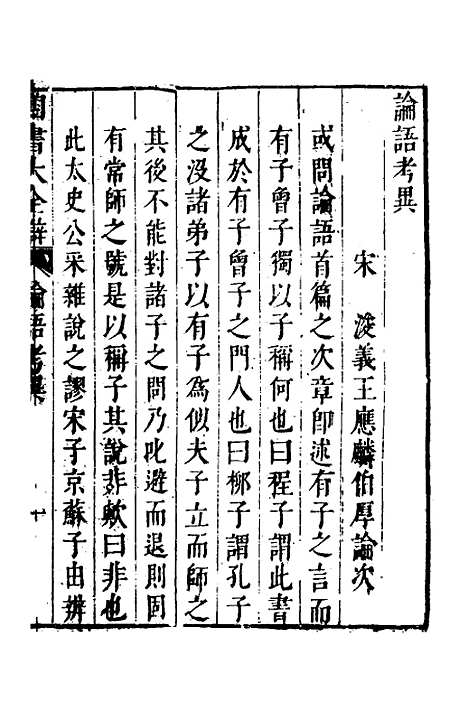 論語考異
宋　浚義王應麟伯厚論次
或問論語首篇之次章卽述有子之言而
有子曾子獨以子稱何也曰程子謂此書
成於有子曾子之門人也曰柳子謂孔子
之沒諸弟子以有子爲似夫子立而師之
其後不能對諸子之問乃叱避而退則固
有常師之號是以稱子其說非歟曰非也
此太史公采雜說之謬宋子京蘇子由辨
四書大全辨　論語考異　十